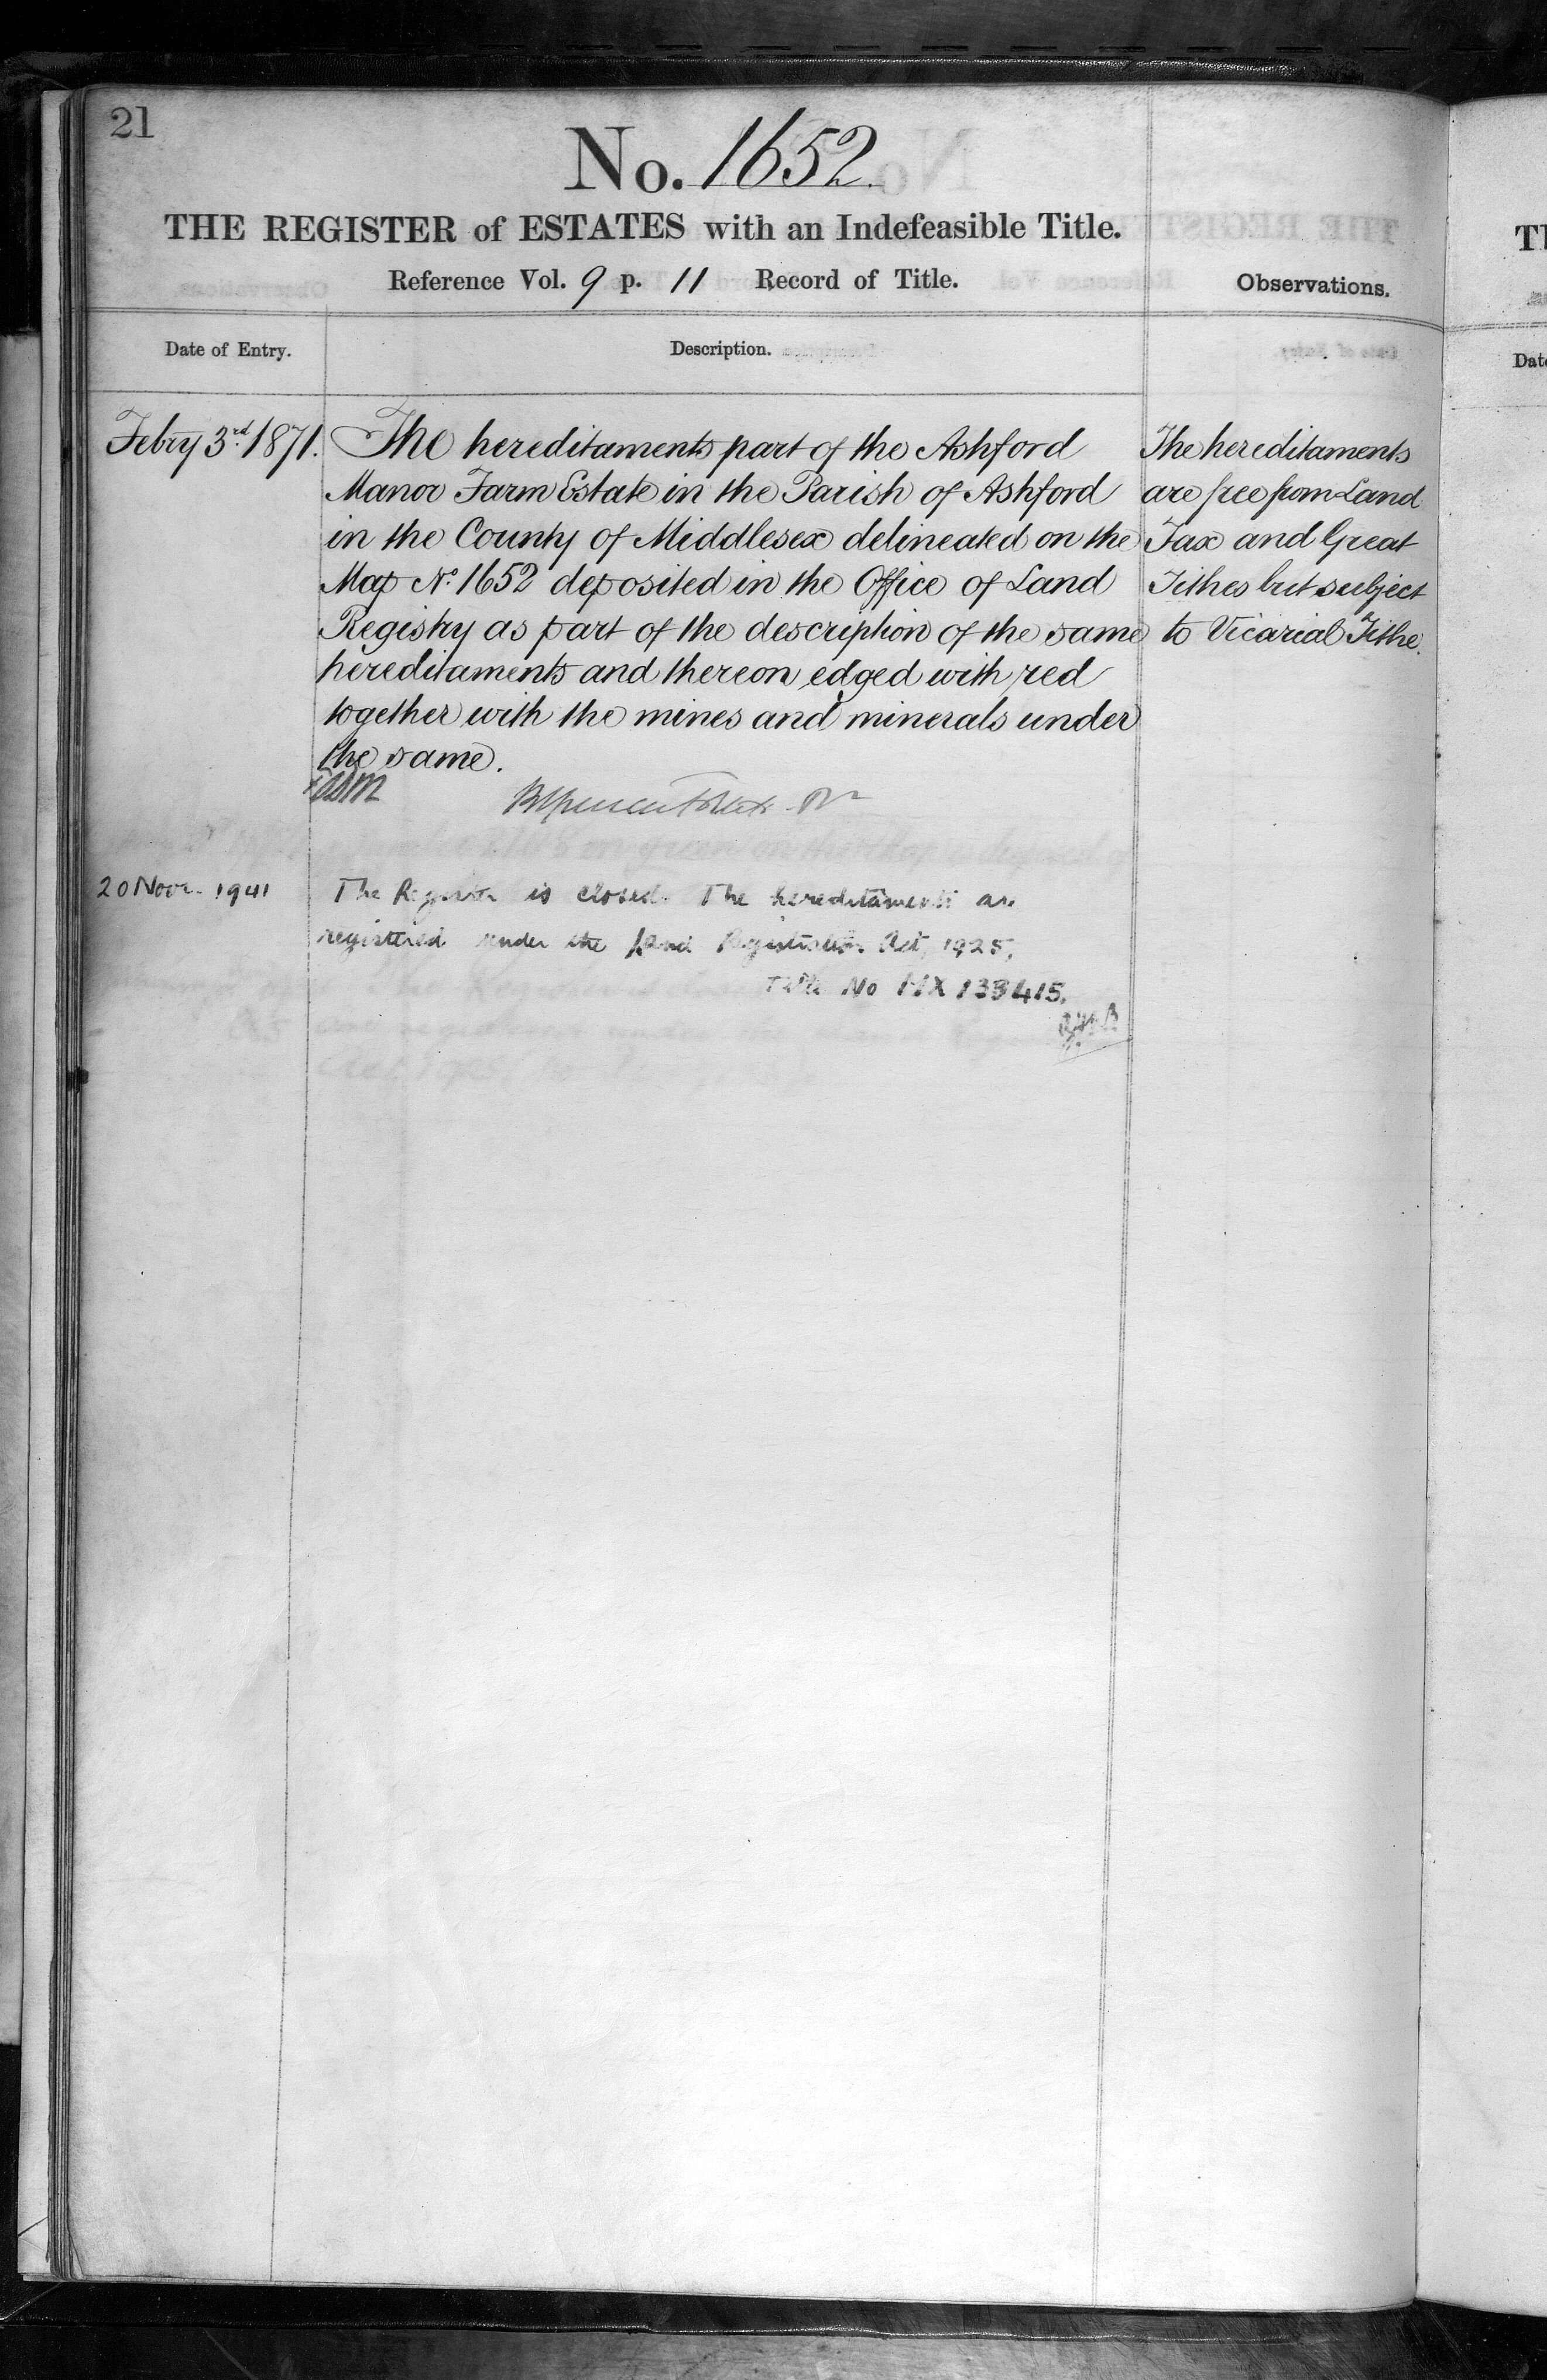 21
No. 1652.
THE REGISTER of ESTATES with an Indefeasible Title.
Reference Vol. 9 p. 11 Record of Title.
Observations.
Date of Entry.
Description.
Febry 3rd 1871.
The hereditaments part of the Ashford
Manor Farm Estate in the Parish of Ashford
in the County of Middlesex delineated on the
Map No. 1652 deposited in the Office of Land
Registry as part of the description of the same
hereditaments and thereon edged with red
together with the mines and minerals under
the same.
The hereditaments
are free from Land
Tax and Great
Tithes but subject
to Vicarial Tithe.
20 Novr. 1941
The Register is closed. The hereditaments are
registered under the Land Registration Act, 1925.
Title No MX 138415.
T
Date